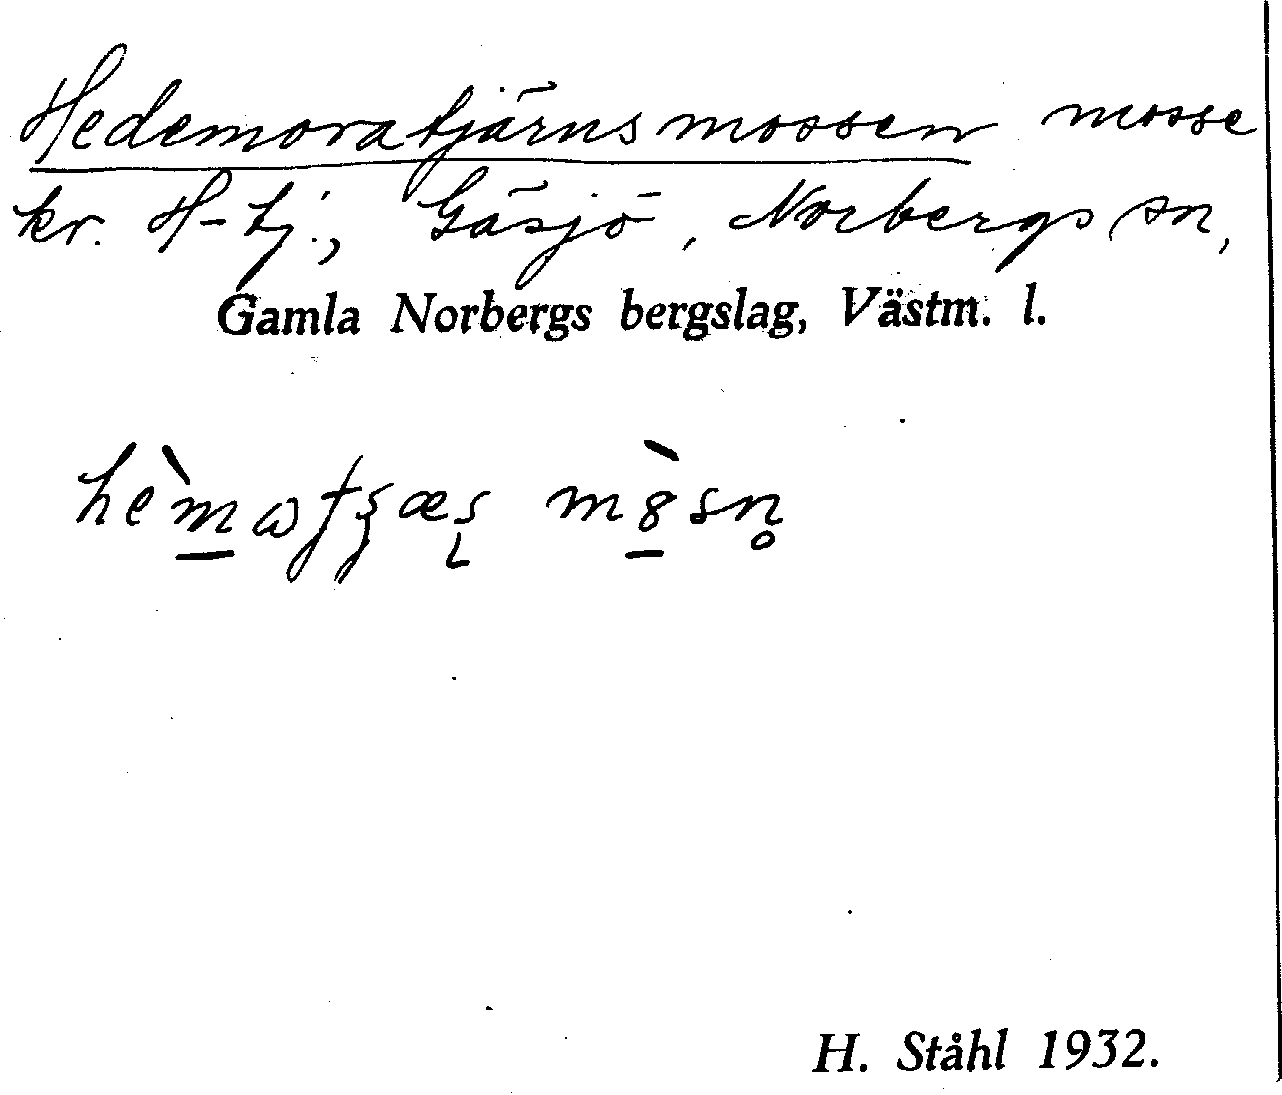 Hedemoratjärnsmossen mosse
kr. H-tj., Gäsjö, Norbergs sn,
Gamla Norbergs bergslag, Västm. l.
H. Ståhl 1932.